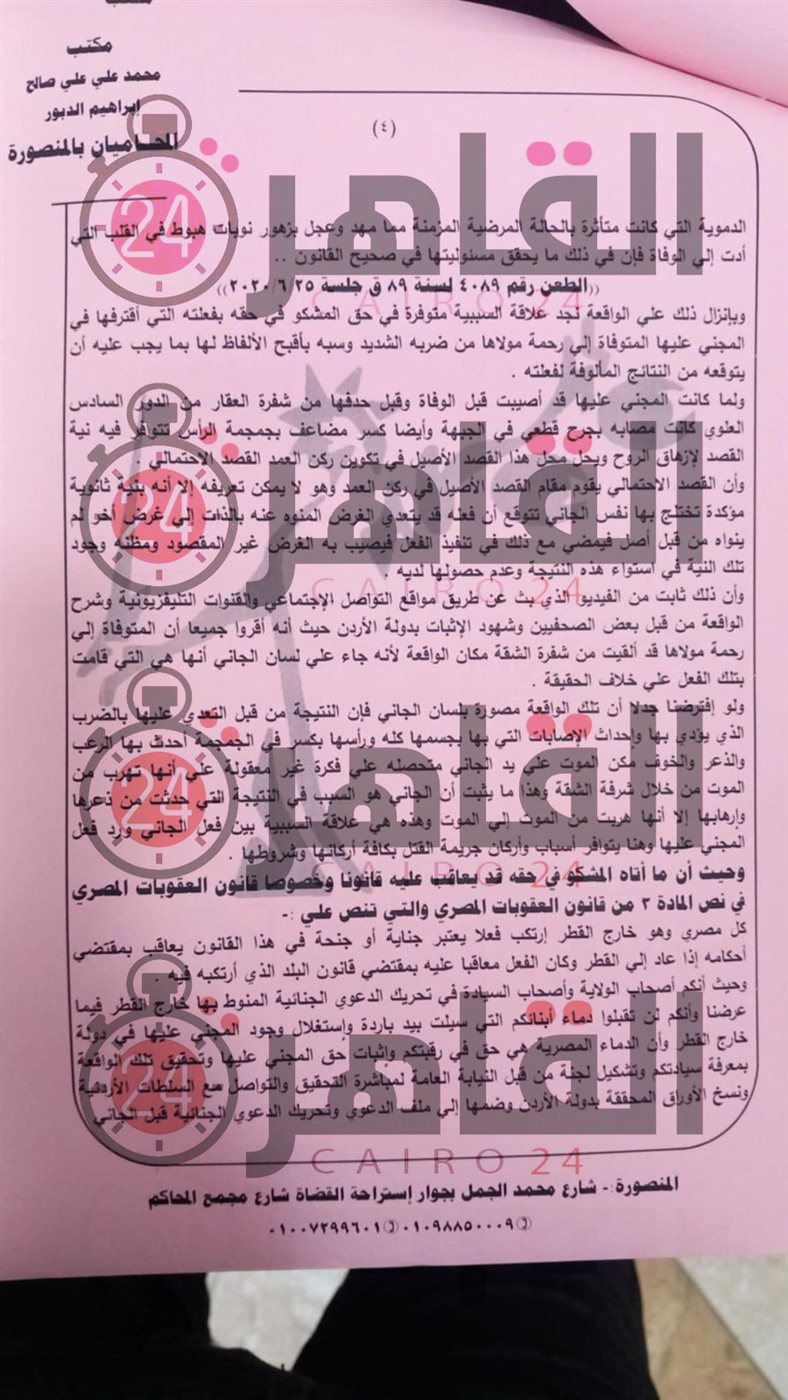 مكتب
مكتب
محمد علي علي صالح
إبراهيم الدبور
المحاميان بالمنصورة
(٤)
الدموية التي كانت متأثرة بالحالة المرضية المزمنة مما مهد وعجل بزهور نوبات هبوط في القلب التي
أدت إلي الوفاة فإن في ذلك ما يحقق مسئوليتها في صحيح القانون ..
((الطعن رقم ٤٠٨٩ لسنة ٨٩ ق جلسة ٢٠٢٠/٦/٢٥))
وبإنزال ذلك علي الواقعة نجد علاقة السببية متوفرة في حق المشكو في حقه بفعلته التي أقترفها في
المجني عليها المتوفاة إلي رحمة مولاها من ضربه الشديد وسبه بأقبح الألفاظ لها بما يجب عليه أن
يتوقعه من النتائج المألوفة لفعلته .
ولما كانت المجني عليها قد أصيبت قبل الوفاة وقبل حدفها من شفرة العقار من الدور السادس
العلوي كانت مصابه بجرح قطعي في الجبهة وأيضا كسر مضاعف بجمجمة الرأس تتوافر فيه نية
القصد لإزهاق الروح ويحل محل هذا القصد الأصيل في تكوين ركن العمد القصد الاحتمالي
وأن القصد الاحتمالي يقوم مقام القصد الأصيل في ركن العمد وهو لا يمكن تعريفه إلا أنه بنية ثانوية
مؤكدة تختلج بها نفس الجاني تتوقع أن فعله قد يتعدي الغرض المنوه عنه بالذات إلي غرض أخو لم
ينواه من قبل أصل فيمضي مع ذلك في تنفيذ الفعل فيصيب به الغرض غير المقصود ومظنه وجود
تلك النية في استواء هذه النتيجة وعدم حصولها لديه .
وأن ذلك ثابت من الفيديو الذي بث عن طريق مواقع التواصل الإجتماعي والقنوات التليفزيونية وشرح
الواقعة من قبل بعض الصحفيين وشهود الإثبات بدولة الأردن حيث أنه أقروا جميعا أن المتوفاة إلي
رحمة مولاها قد ألقيت من شفرة الشقة مكان الواقعة لأنه جاء علي لسان الجاني أنها هي التي قامت
بتلك الفعل علي خلاف الحقيقة .
ولو إفترضنا جدلا أن تلك الواقعة مصورة بلسان الجاني فإن النتيجة من قبل التعدي عليها بالضرب
الذي يؤدي بها وإحداث الإصابات التي بها بجسمها كله ورأسها بكسر في الجمجمة أحدث بها الرعب
والذعر والخوف مكن الموت علي يد الجاني متحصله علي فكرة غير معقولة علي أنها تهرب من
الموت من خلال شرفة الشقة وهذا ما يثبت أن الجاني هو السبب في النتيجة التي حدثت من ذعرها
وإرهابها إلا أنها هربت من الموت إلي الموت وهذه هي علاقة السببية بين فعل الجاني ورد فعل
المجني عليها وهنا يتوافر أسباب وأركان جريمة القتل بكافة أركانها وشروطها .
وحيث أن ما أتاه المشكو في حقه قد يعاقب عليه قانونا وخصوصا قانون العقوبات المصري
في نص المادة ٣ من قانون العقوبات المصري والتي تنص علي :-
كل مصري وهو خارج القطر إرتكب فعلا يعتبر جناية أو جنحة في هذا القانون يعاقب بمقتضي
أحكامه إذا عاد إلي القطر وكان الفعل معاقبا عليه بمقتضي قانون البلد الذي أرتكبه فيه .
وحيث أنكم أصحاب الولاية وأصحاب السيادة في تحريك الدعوي الجنائية المنوط بها خارج القطر فيما
عرضنا وأنكم لن تقبلوا دماء أبنائكم التي سيلت بيد باردة وإستغلال وجود المجني عليها في دولة
خارج القطر وأن الدماء المصريه هي حق في رقبتكم وإثبات حق المجني عليها وتحقيق تلك الواقعة
بمعرفة سيادتكم وتشكيل لجنة من قبل النيابة العامة لمباشرة التحقيق والتواصل مع السلطات الأردنية
ونسخ الأوراق المحققة بدولة الأردن وضمها إلي ملف الدعوي وتحريك الدعوي الجنائية قبل الجاني
المنصورة :- شارع محمد الجمل بجوار إستراحة القضاة شارع مجمع المحاكم
٠١٠٩٨٨٥٠٠٠٩ ٠١٠٠٧٢٩٩٦٠١
القاهرة 24
CAIRO 24
القاهرة 24
CAIRO 24
القاهرة 24
CAIRO 24
القاهرة 24
CAIRO 24